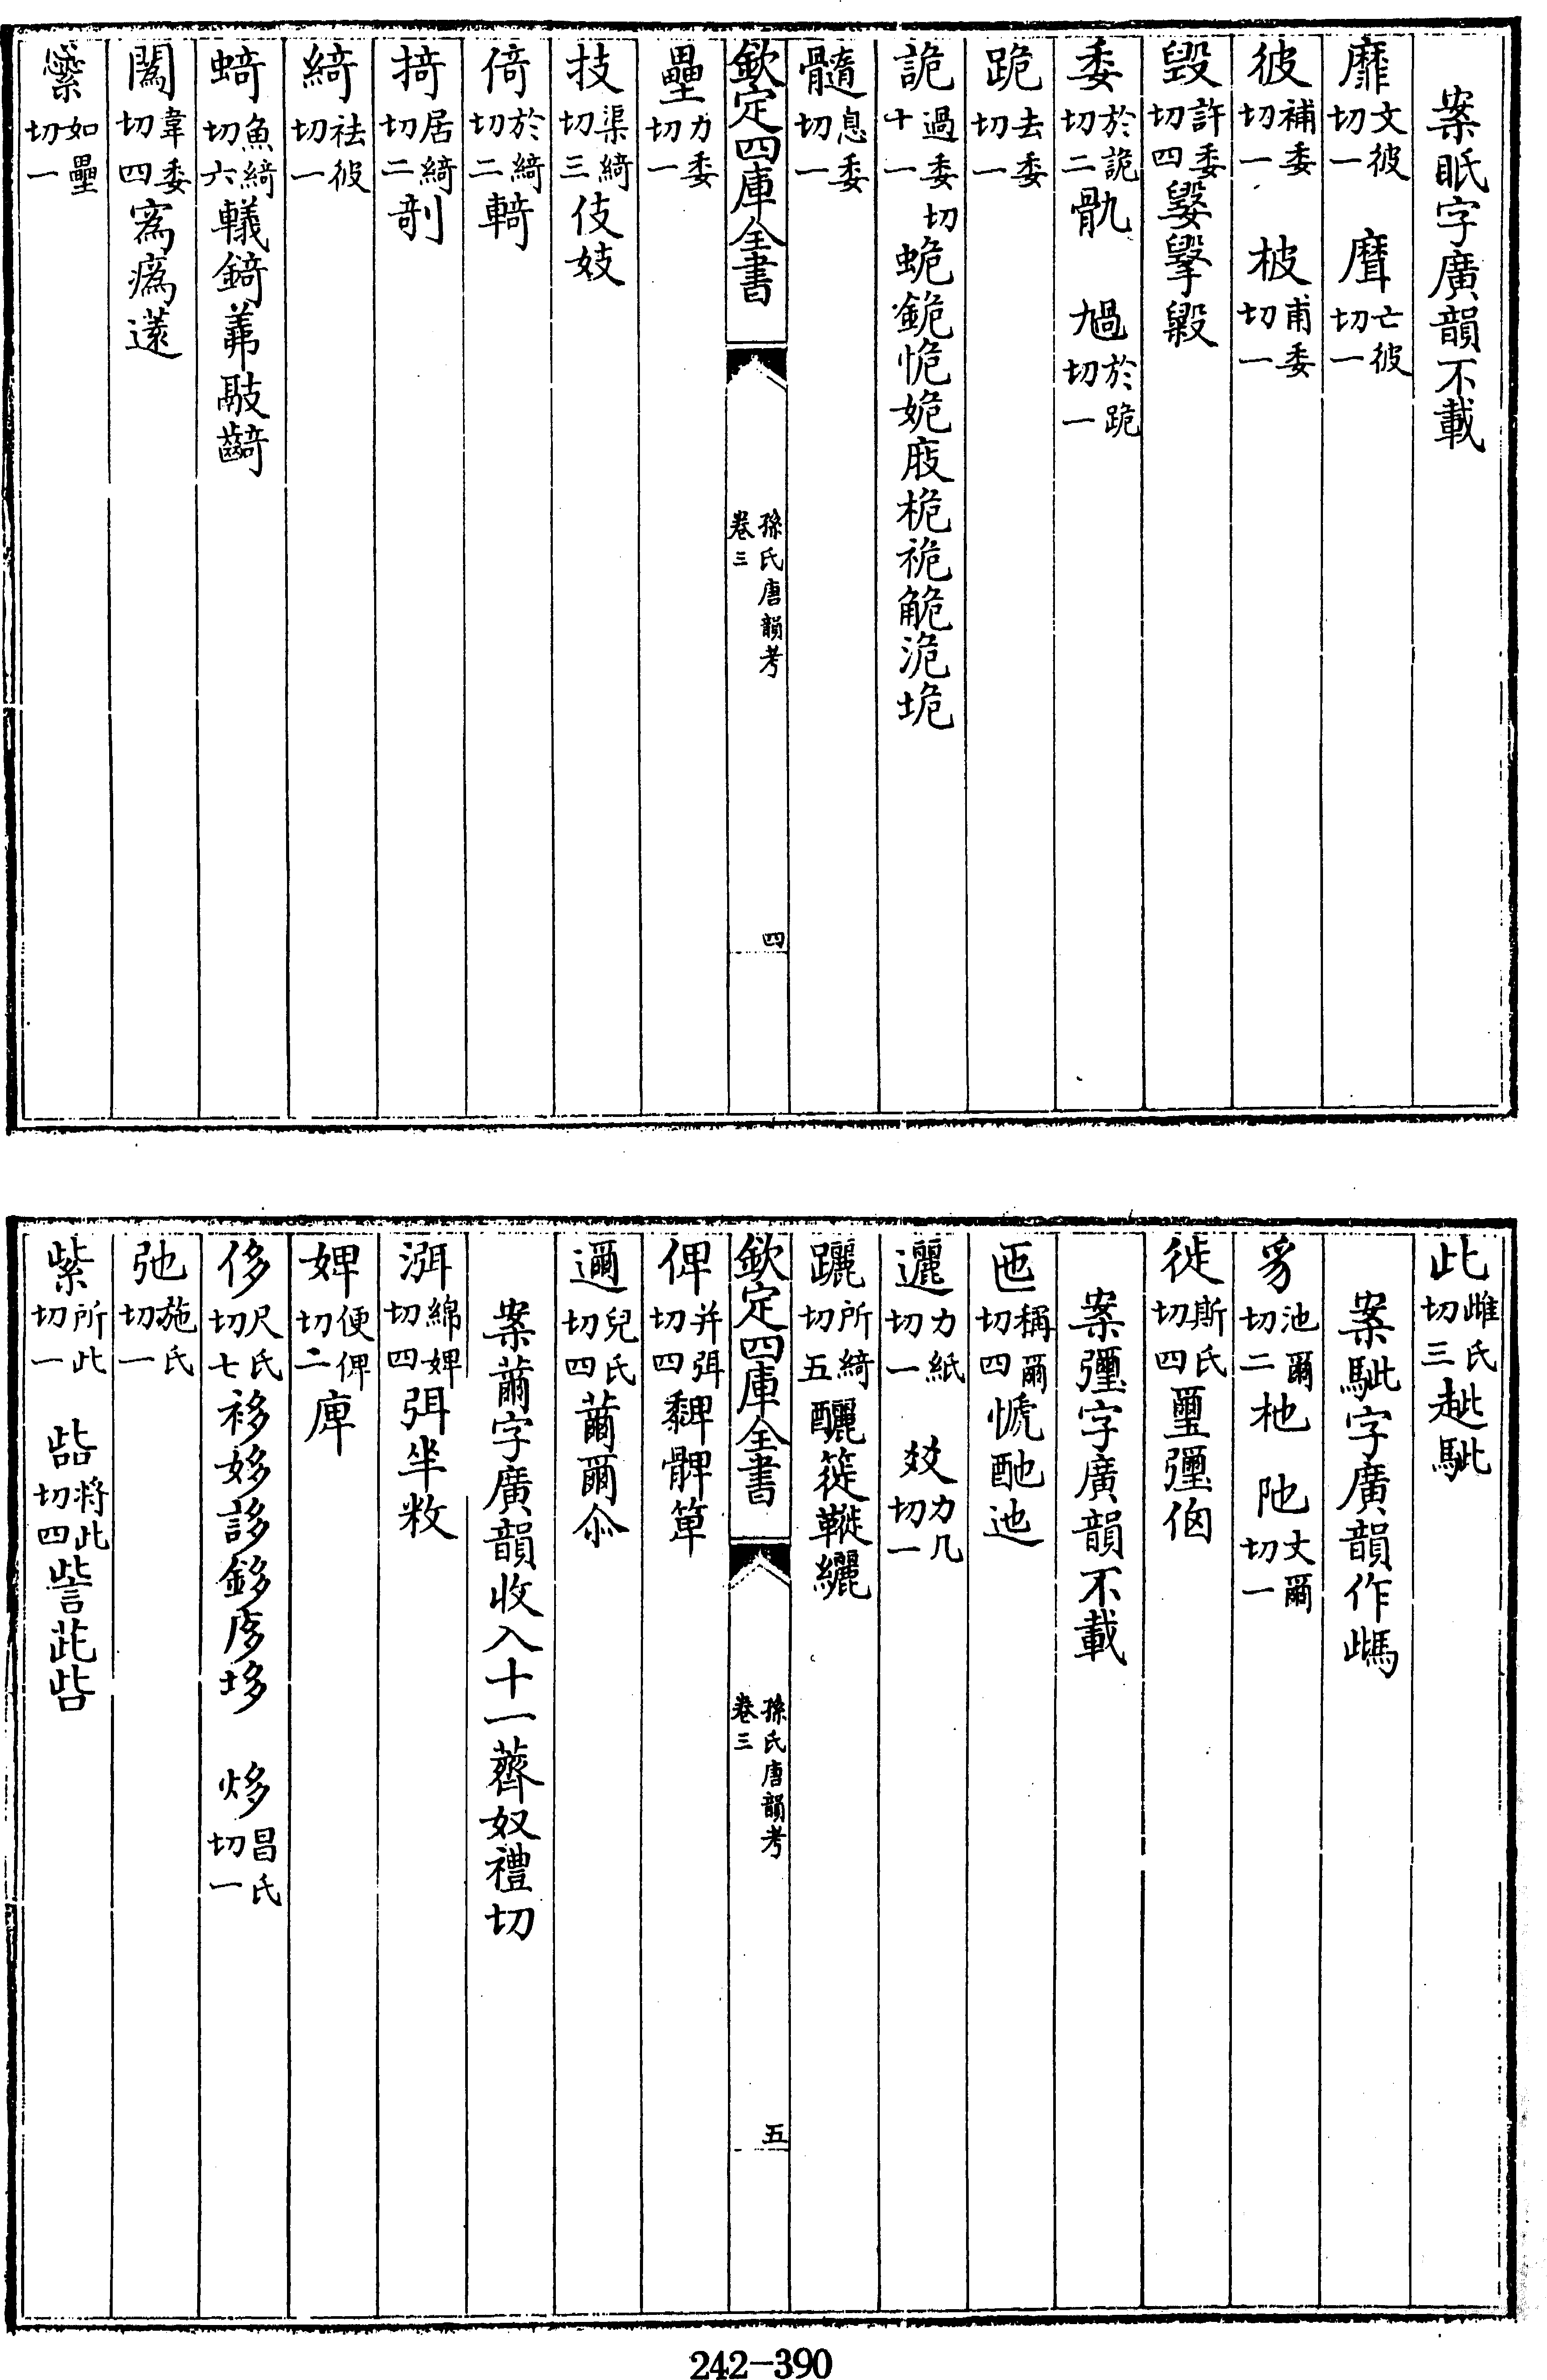 案眂字廣韻不載
靡文彼切一　䃺亡彼切一
彼補委切一　柀甫委切一
毀許委切四嫛毇
委於詭切二骫　䞈於跪切一
跪去委切一
詭過委切十一蛫鉇恑姽庪桅祪觤洈垝
髓息委切一
欽定四庫全書　孫氏唐韻考卷三　四
壘力委切一
技渠綺切三伎妓
倚於綺切二輢
掎居綺切二剞
綺袪彼切一
螘魚綺切六轙錡羛敧齮
闠韋委切四寪㾯蒍
蘂如壘切一
此雌氏切三跐䮂
案䮂字廣韻作䳄
豸池爾切二杝　阤丈爾切一
徙斯氏切四璽㺨佌
案㺨字廣韻不載
迤移爾切四㥴酏迆
邐力紙切一　㸚力几切一
躧所綺切五釃簁䩱纚
欽定四庫全書　孫氏唐韻考卷三　五
俾并弭切四䫌髀箄
邇兒氏切四薾爾尒
案薾字廣韻收入十一薺奴禮切
渳綿婢切四弭羋敉
婢便俾切二庳
侈尺氏切七袳姼誃鉹㢋垑　㶴昌氏切一
弛施氏切一
紫所此切一　㱔將此切四訾茈呰
242-390